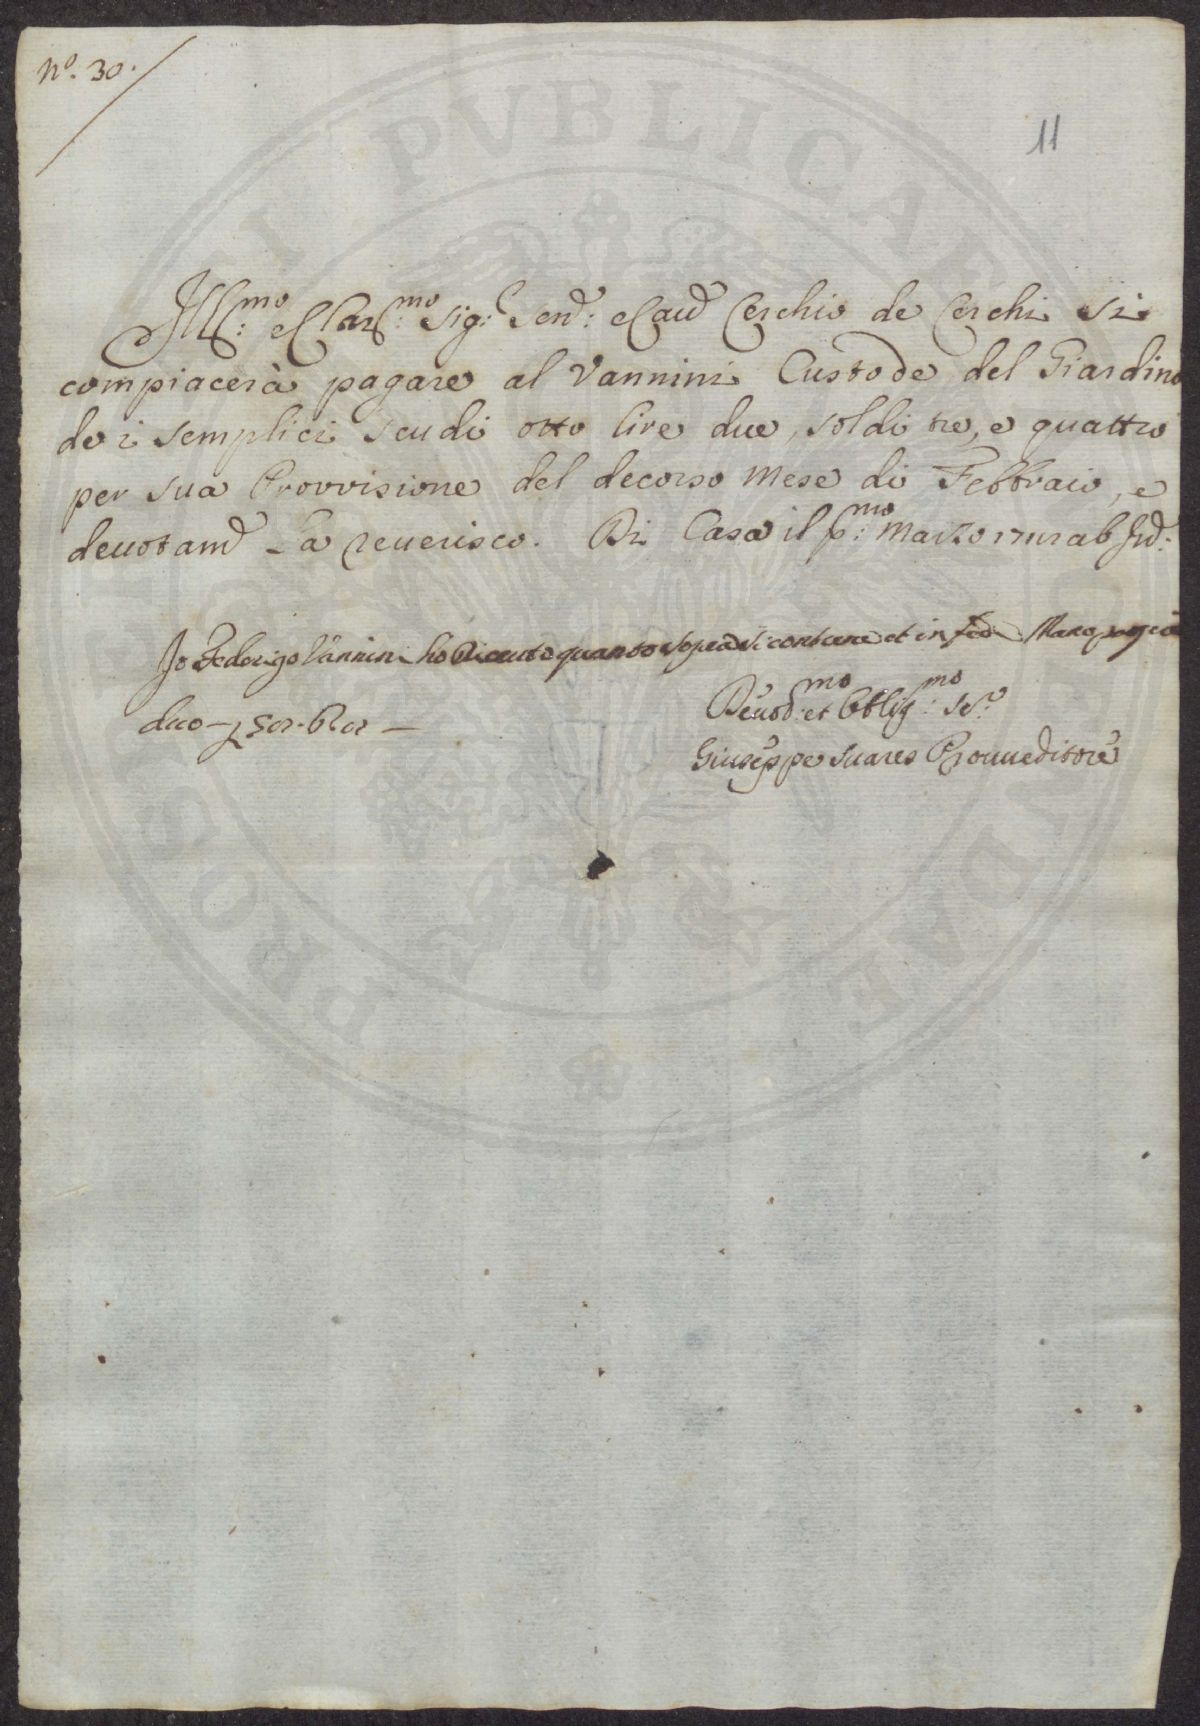 N.o 30.
11
Ill:mo e Clar:mo Sig:r Sen:re e Cau:re Cerchio de Cerchi si
compiacerà pagare al Vannini Custode del Giardino
de i semplici scudi otto lire due, soldi tre, e quattro
per sua Provvisione del decorso Mese di Febbraio, e
deuotam:te La reuerisco. Di Casa il p:mo Marzo ab
Io Federigo Vannini ho Riceuto quanto sopra si contiene et in fede Mano propria
Deuot:mo et Oblig:mo Se:re
duo
Giuseppe Suares Prouueditore
PROSPERITATI PUBLICAE AUGENDAE